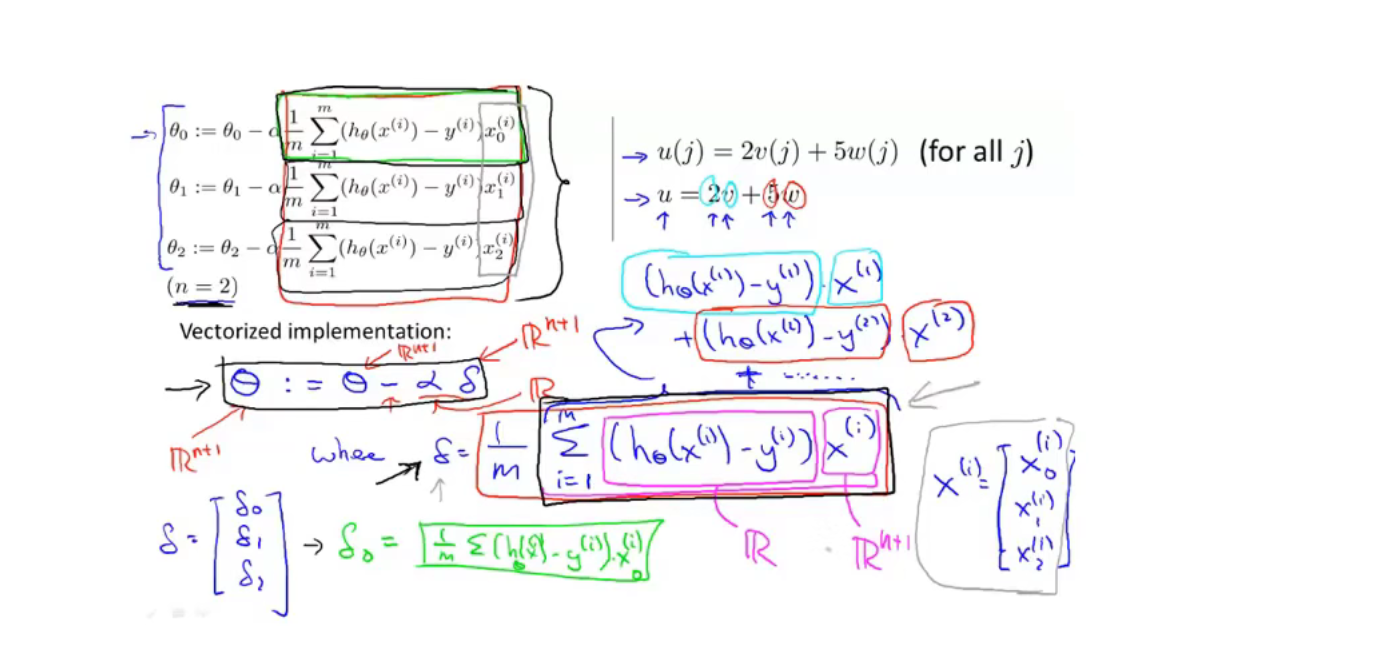 θ₀ := θ₀ − α 1/m ∑_{i=1}^{m} (h_θ(x^{(i)}) − y^{(i)}) x₀^{(i)}
θ₁ := θ₁ − α 1/m ∑_{i=1}^{m} (h_θ(x^{(i)}) − y^{(i)}) x₁^{(i)}
θ₂ := θ₂ − α 1/m ∑_{i=1}^{m} (h_θ(x^{(i)}) − y^{(i)}) x₂^{(i)}
(n = 2)
→ u(j) = 2v(j) + 5w(j) (for all j)
→ u = 2v + 5w
↑ ↑↑ ↑↑
(h_θ(x^{(1)}) − y^{(1)}) · x^{(1)}
+ (h_θ(x^{(2)}) − y^{(2)}) x^{(2)}
+ ........
Vectorized implementation:
ℝ^{n+1} ℝ^{n+1}
→ θ := θ − α δ
ℝ^{n+1} ℝ
where → δ = 1/m ∑_{i=1}^{m} (h_θ(x^{(i)}) − y^{(i)}) x^{(i)}
ℝ ℝ^{n+1}
x^{(i)} = [x₀^{(i)} x₁^{(i)} x₂^{(i)}]
δ = [δ₀ δ₁ δ₂] → δ₀ = 1/m ∑ (h_θ(x^{(i)}) − y^{(i)}) · x₀^{(i)}